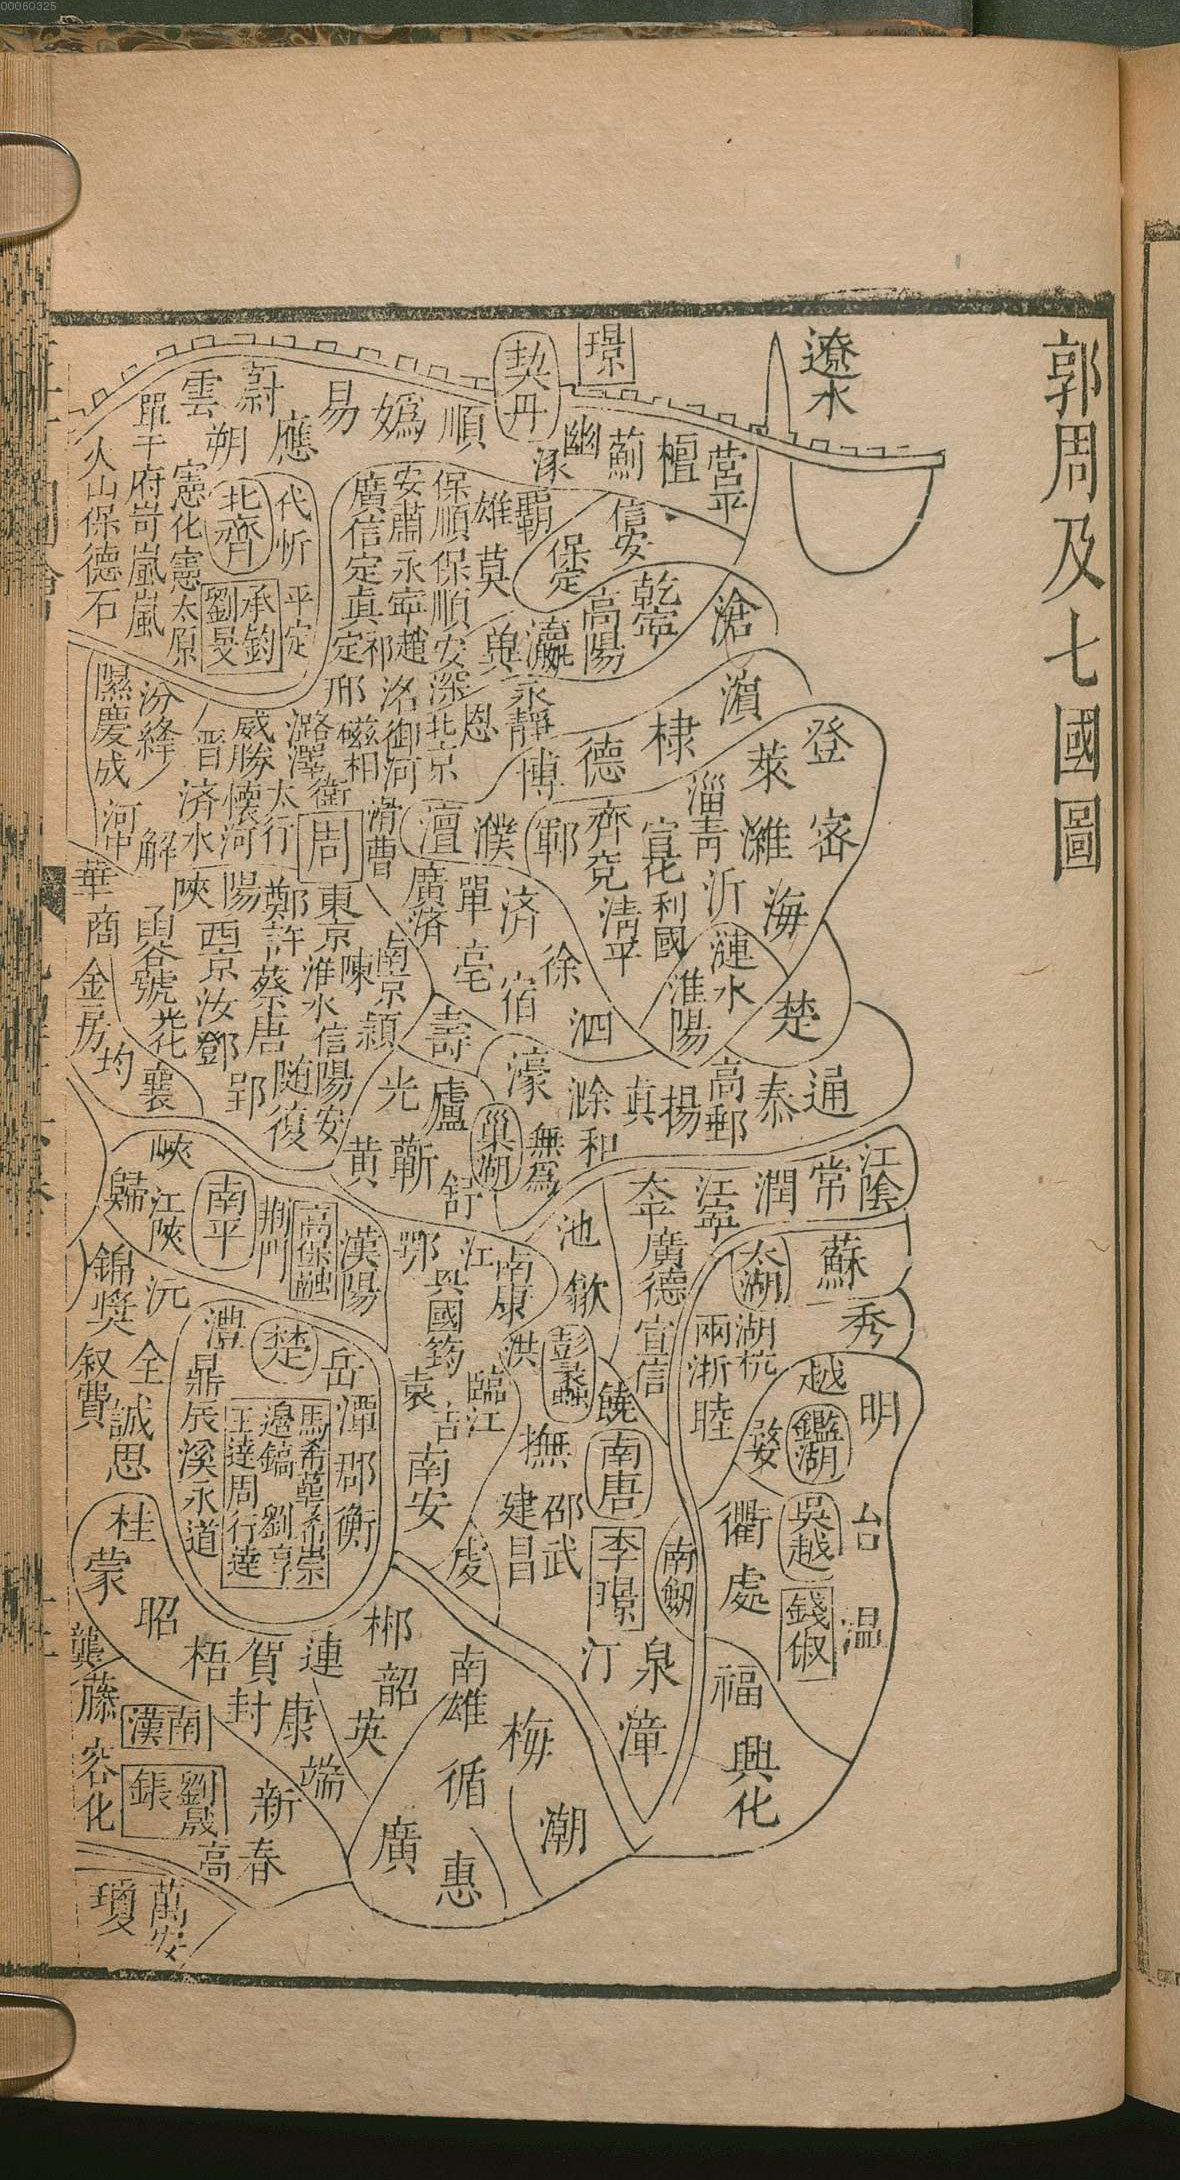 00060325
郭周及七國圖
遼水
璟
契丹
營平
檀
薊
幽
涿
順
媯
易
應
蔚
雲
朔
單于府岢嵐嵐
火山保德石
憲化憲太原
北齊
代忻
平定
劉旻
承鈞
廣信定真定
安肅永寧趙
祁
保順保順安
雄
霸
莫
保定
信安
乾寧
高陽
滄
冀
瀛
深
永靜
恩
北京
洺
御河
邢
磁相
隰慶成
汾絳
晉
威勝
潞澤
太行
衛
懷
河陽
済水
河中
解
周
滑曹
澶
濮
鄆
博
德
棣
濵
登
萊
密
濰
淄青
齊
兗
宣化
清平
利國
沂
海
漣水
淮陽
楚
華
商
金房
均
襄
陝
虢
西京汝鄧
鄭許
蔡唐
東京
淮水
信陽
陳
南京
頴
廣済
單
済
亳
宿
徐
泗
壽
濠
滁
和
真
揚
高郵
泰
通
郢
随
復
安
光
廬
黃
蘄
舒
巢湖
無為
峽
歸
江陵
南平
荆門
高保融
漢陽
鄂
江
南康
興國
筠
袁
臨江
吉
南安
虔
洪
彭蠡
饒
撫
建昌
邵武
南唐
李璟
南劒
汀
泉
漳
池
歙
太平
廣德
宣信
江寧
潤
常
江隂
太湖
蘇
秀
湖杭
兩浙
睦
越
明
婺
鑑湖
吳越
錢俶
衢
處
台
温
福
興化
錦獎
沅
叙費
全
誠思
澧
楚
岳
鼎辰溪永道
潭
郡
衡
馬希萼希崇
邊鎬
劉亨
王逵周行逵
桂
蒙
昭
梧
賀
封
連
康
郴
韶
英
端
南雄
循
梅
潮
惠
廣
龔
藤
容
化
南漢
劉晟
鋹
新
春
高
瓊
萬安